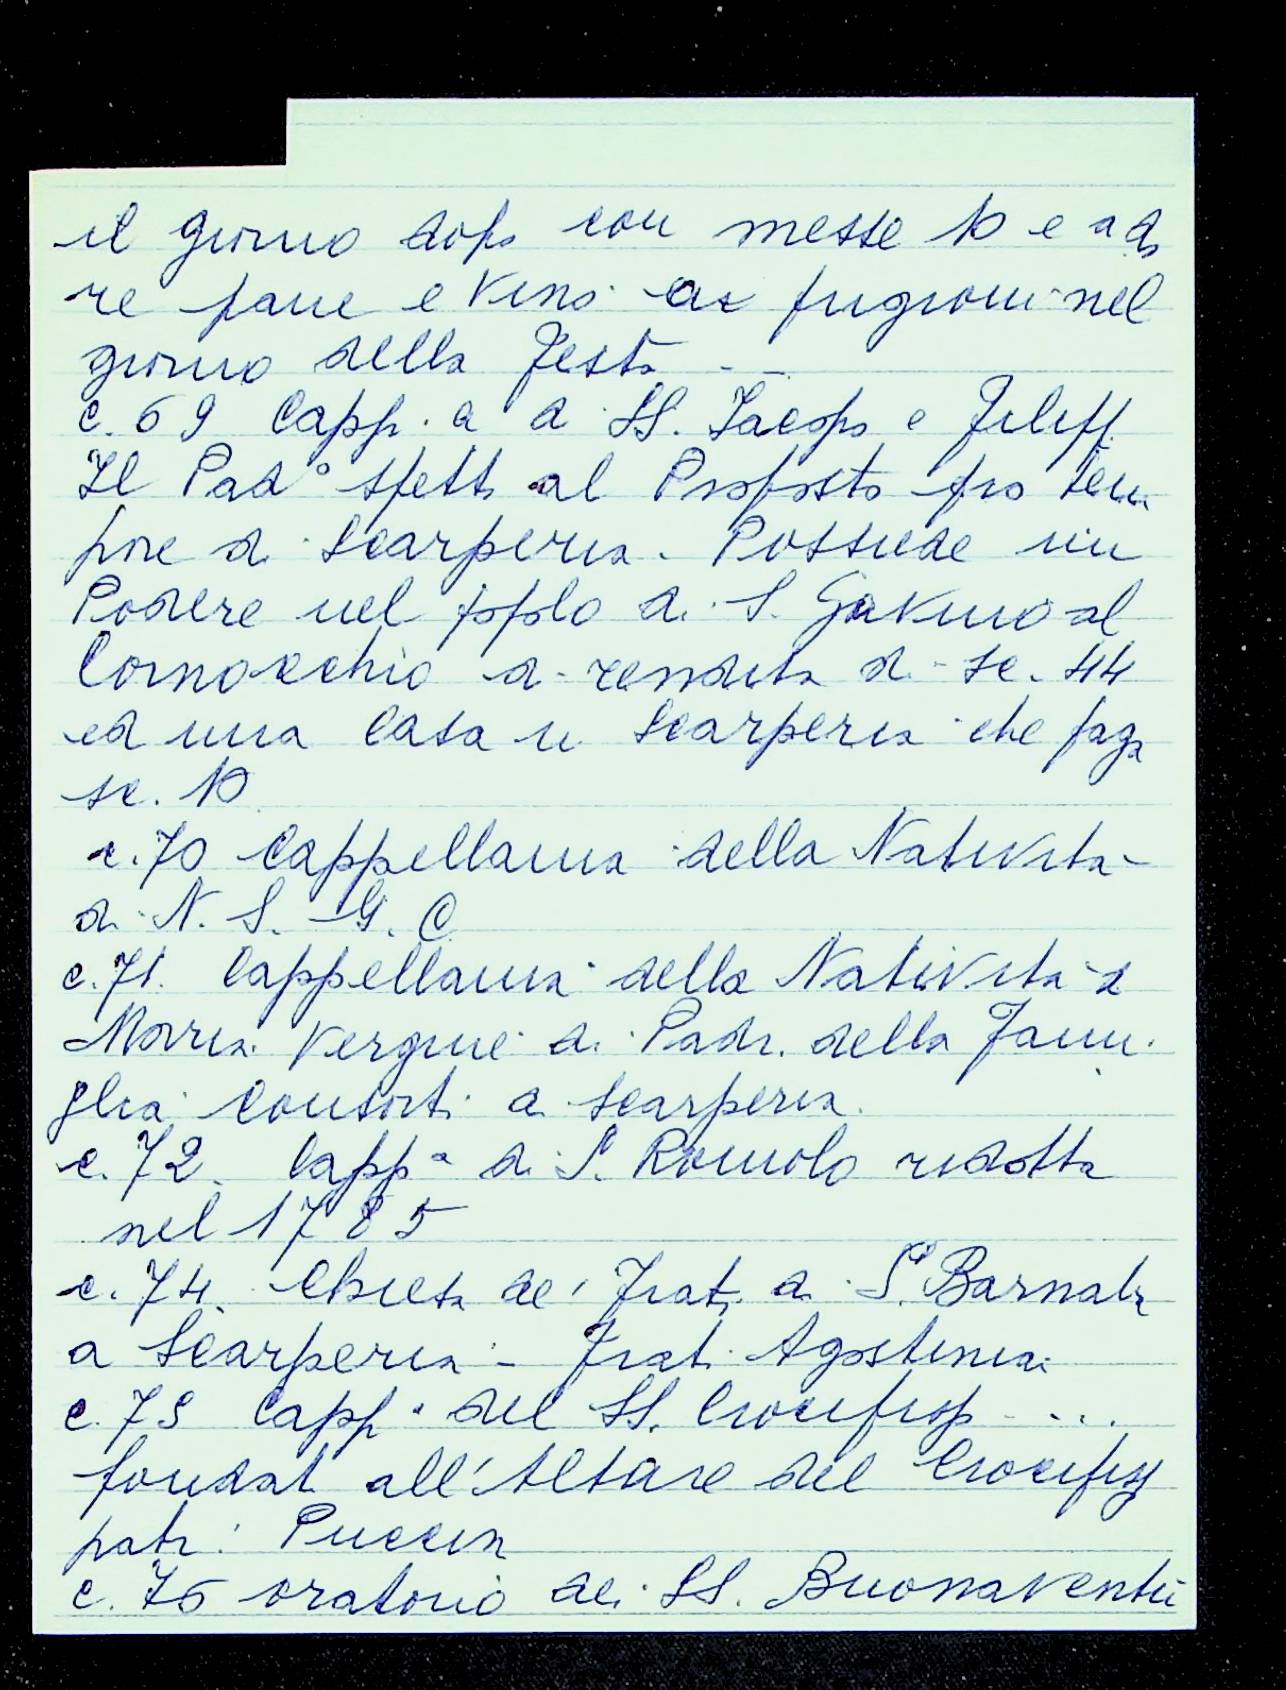 il giorno dopo con messe 10 e a da
re pane e vino ai prigioni nel
giorno della festa - -
c. 69 Capp.a di SS. Jacopo e Filipp
Il Pad° spett. al Proposto pro tem
pore di Scarperia. Possiede un
Podere nel popolo di S. Gavino al
Cornocchio di rendita di sc. 44
ed una Casa in Scarperia che paga
sc. 10
c. 70 Cappellania della Natività
di N. S. G. C
c. 71. Cappellania della Natività di
Maria Vergine di Padr. della Fami
glia Consorti di Scarperia.
c. 72. Capp.a di S. Romolo ridotta
nel 1785
c. 74. Chiesa de' Frati di S. Barnaba
a Scarperia - Frati Agostiniani
c. 75 Capp.a del SS. Crocifisso ....
fondat all'Altare del Crocifisso
patr: Puccini
c. 76 oratorio dei SS. Buonaventu